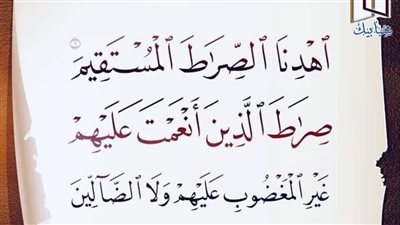 ٱهْدِنَا ٱلصِّرَٰطَ ٱلْمُسْتَقِيمَ ٦
صِرَٰطَ ٱلَّذِينَ أَنْعَمْتَ عَلَيْهِمْ
غَيْرِ ٱلْمَغْضُوبِ عَلَيْهِمْ وَلَا ٱلضَّآلِّينَ